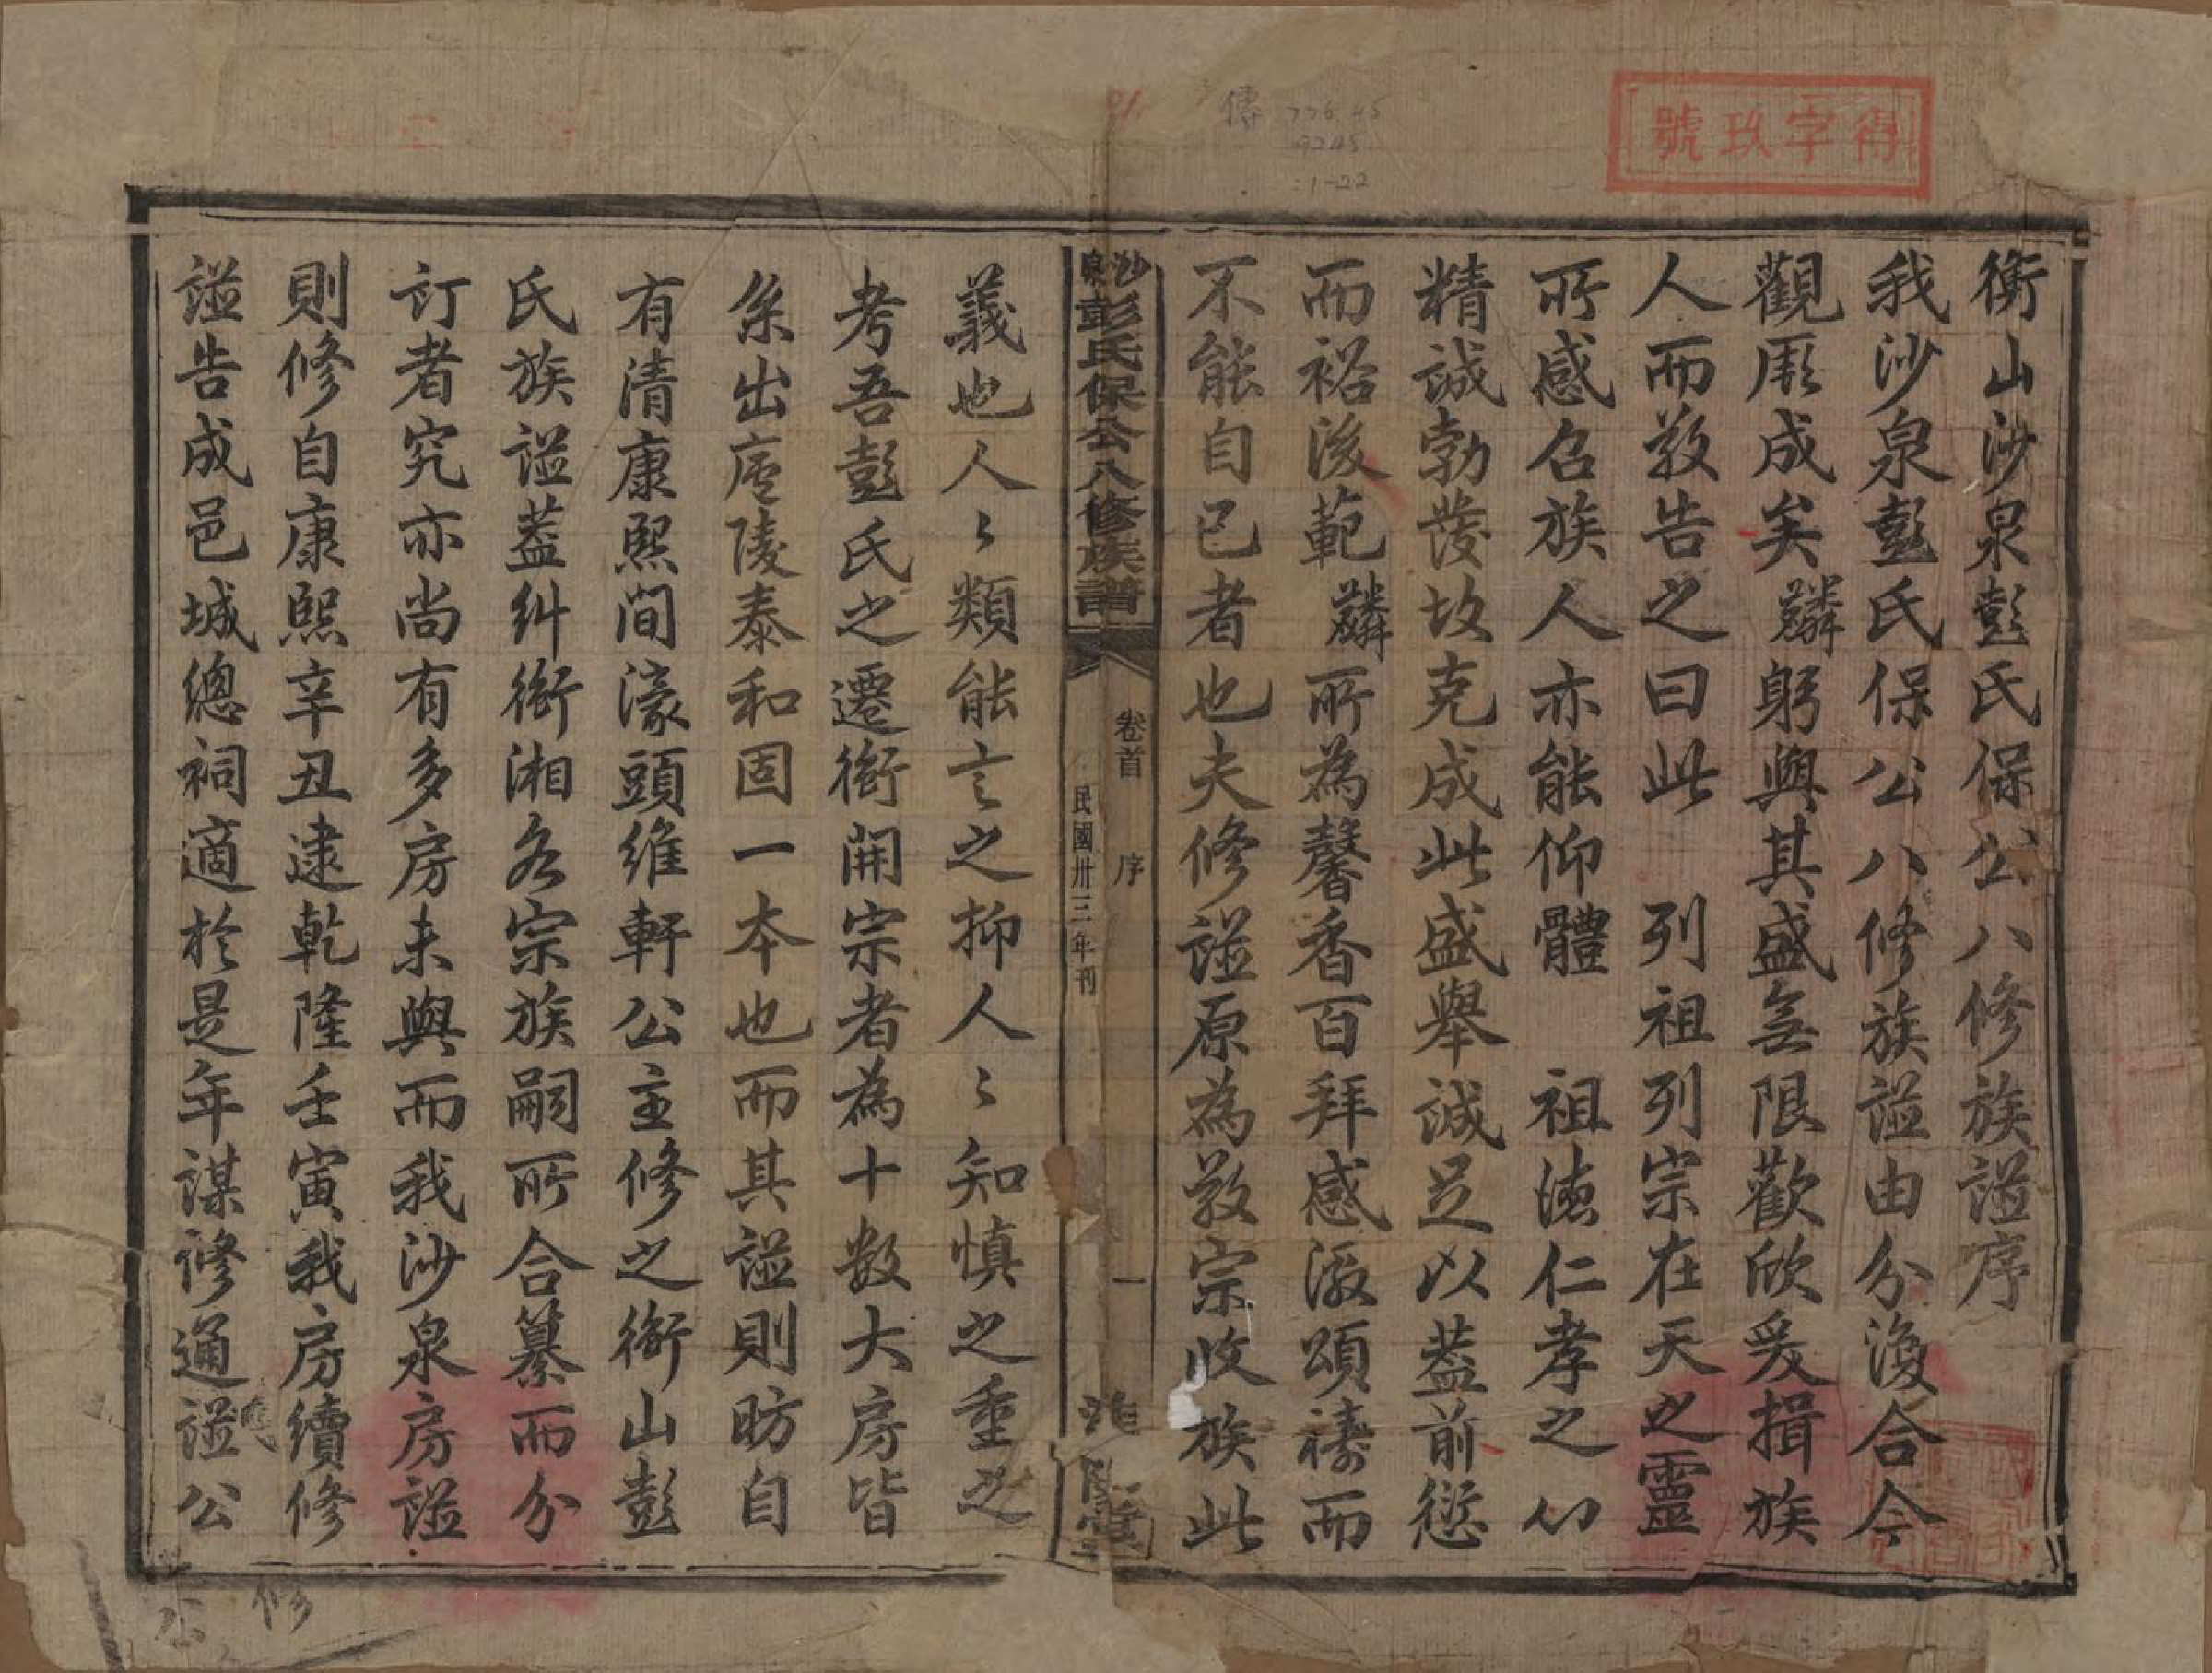 得字玖號
傳 776.45
9245
:1-22
衡山沙泉彭氏保公八修族谥序
我沙泉彭氏保公八修族谥由分渙合今
觀厥成矣麟躬與其盛無限歡欣爰揖族
人而敎告之曰此 列祖列宗在天之靈
所感召族人亦能仰體 祖德仁孝之心
精誠勃發故克成此盛舉誠足以蓋前愆
而裕後範麟所為馨香百拜感激頌禱而
不能自已者也夫修谥原為敎宗收族此
沙泉彭氏保公八修族譜
卷首 序 一
民國卅三年刊
淮陽堂
義也人〻類能言之抑人〻知慎之重之
考吾彭氏之遷衡開宗者為十數大房皆
系出庐陵泰和固一本也而其谥則昉自
有清康熙間濠頭維軒公主修之衡山彭
氏族谥蓋糾衡湘各宗族嗣所合纂而分
訂者究亦尚有多房未與而我沙泉房谥
則修自康熙辛丑逮乾隆壬寅我房續修
谥告成邑城總祠適於是年謀修通谥公
公 修